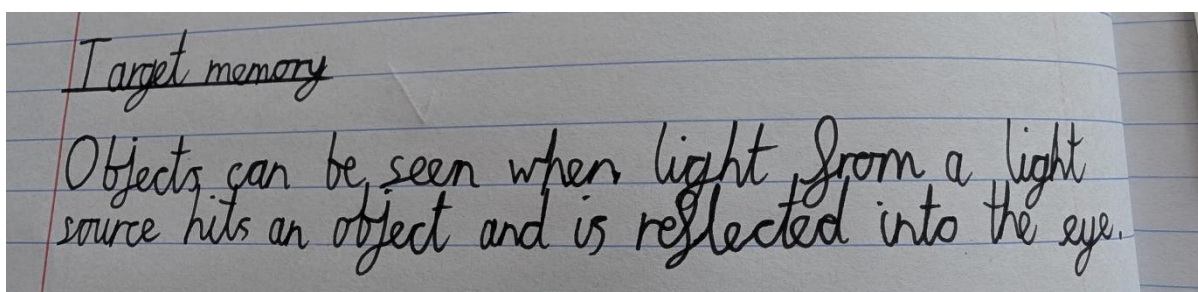 Target memory
Objects can be seen when light from a light
source hits an object and is reflected into the eye.